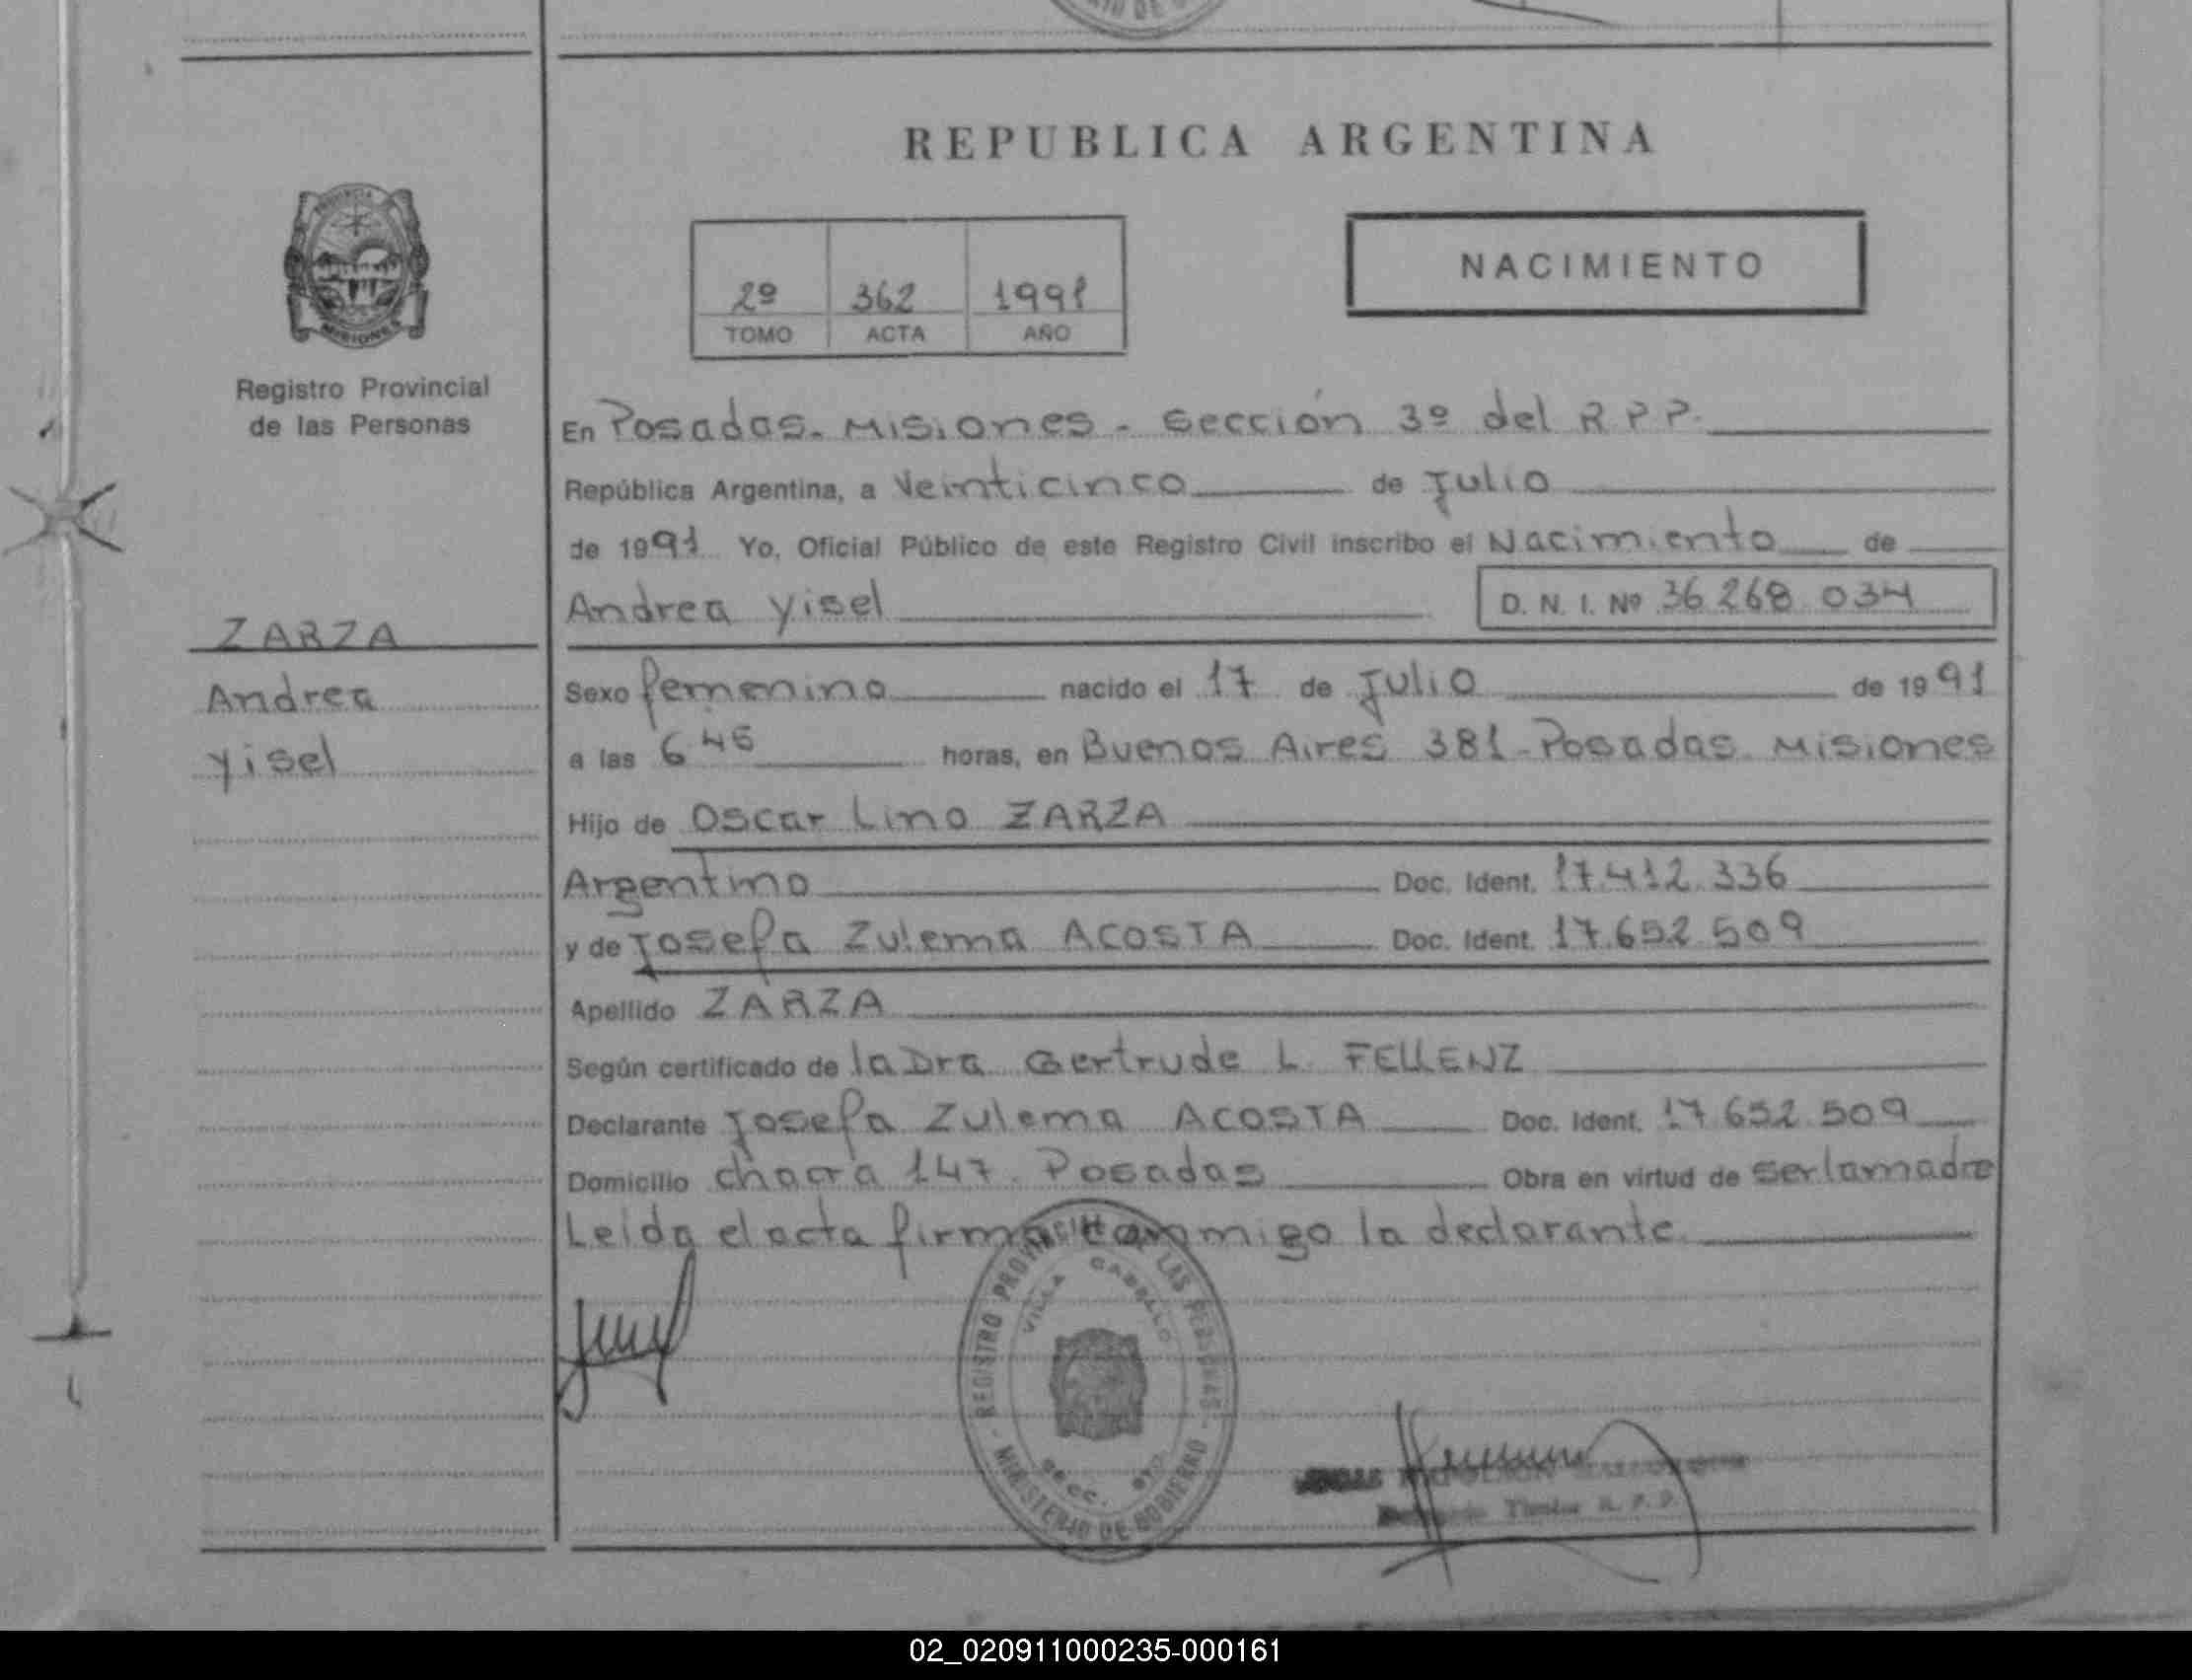 REPUBLICA ARGENTINA
PROVINCIA
MISIONES
Registro Provincial
de las Personas
2º 362 1991
TOMO ACTA AÑO
NACIMIENTO
En Posadas. Misiones - Sección 3º del R.P.P.
República Argentina, a Veinticinco de Julio
de 1991 Yo, Oficial Público de este Registro Civil inscribo el Nacimiento de
Andrea Yisel D. N. I. Nº 36.268.034
ZARZA
Andrea
Yisel
Sexo femenino nacido el 17 de Julio de 1991
a las 6 45 horas, en Buenos Aires 381-Posadas. Misiones
Hijo de Oscar Lino ZARZA
Argentino Doc. Ident. 17.412.336
y de Josefa Zulema ACOSTA Doc. Ident. 17.652.509
Apellido ZARZA
Según certificado de la Dra Gertrude L. FELLENZ
Declarante Josefa Zulema ACOSTA Doc. Ident. 17.652.509
Domicilio chacra 147. Posadas Obra en virtud de ser la madre
Leida el acta firma conmigo la declarante
REGISTRO PROVINCIAL DE LAS PERSONAS
VILLA CABELLO
SECC. 3ra.
- MINISTERIO DE GOBIERNO -
Titular R. P. P.
02_020911000235-000161